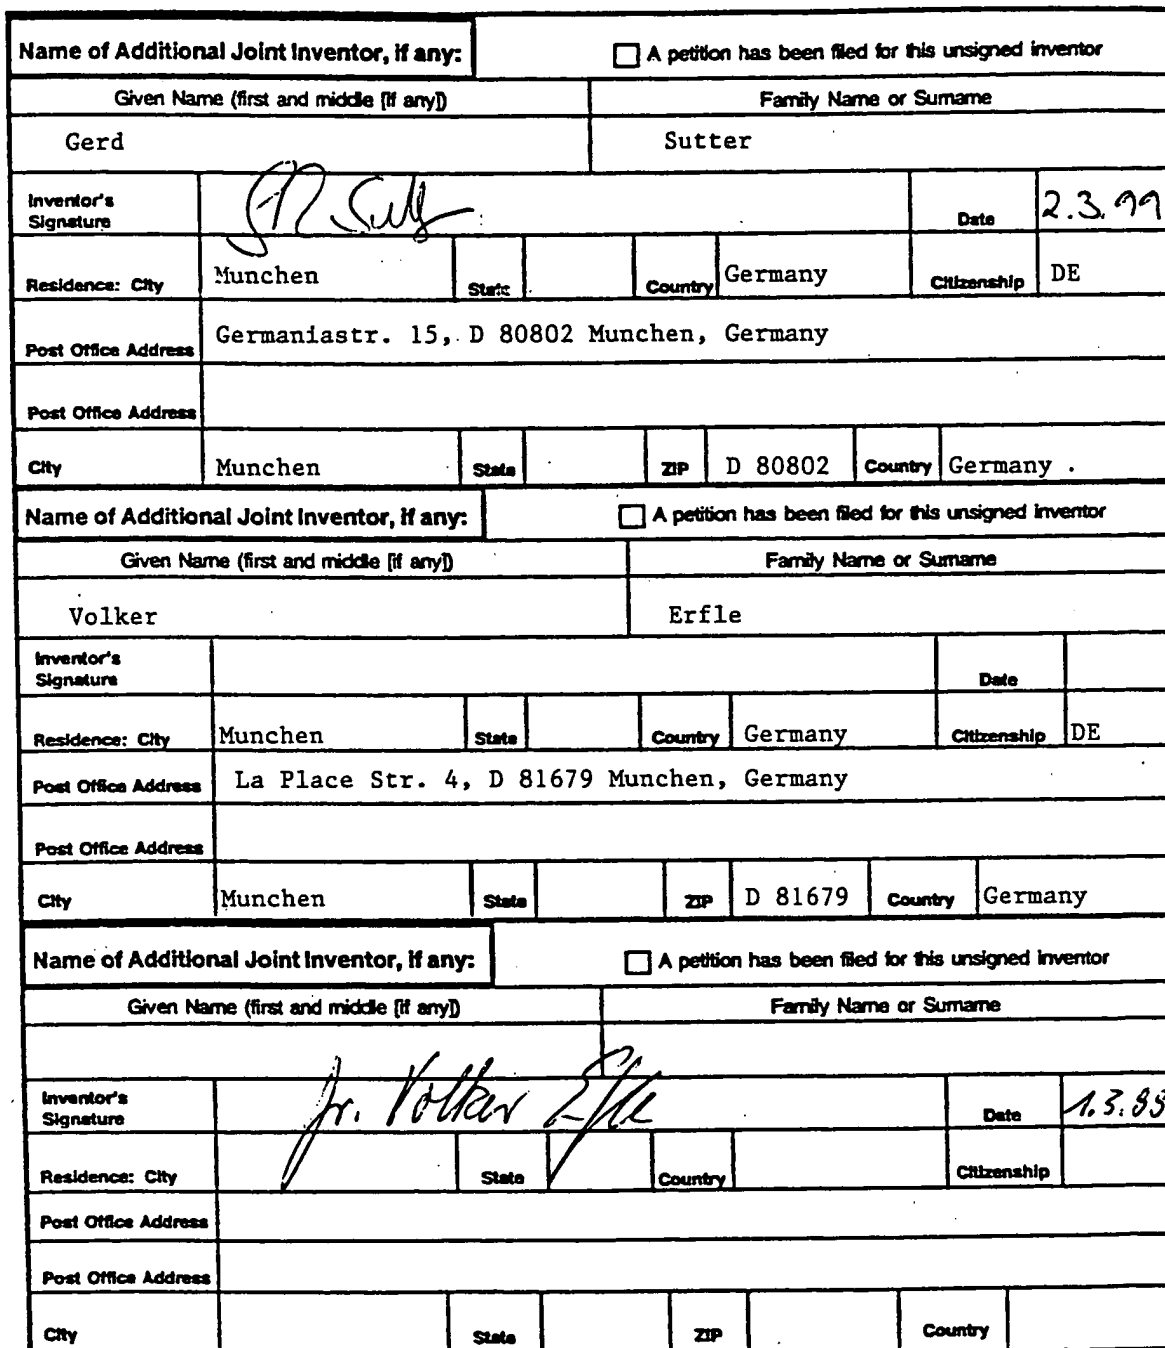 Name of Additional Joint Inventor, if any: A petition has been filed for this unsigned inventor
Given Name (first and middle [if any]) Family Name or Surname
Gerd Sutter
Inventor's
Signature Date 2.3.99
Residence: City Munchen State Country Germany Citizenship DE
Post Office Address Germaniastr. 15, D 80802 Munchen, Germany
Post Office Address
City Munchen State ZIP D 80802 Country Germany
Name of Additional Joint Inventor, if any: A petition has been filed for this unsigned inventor
Given Name (first and middle [if any]) Family Name or Surname
Volker Erfle
Inventor's
Signature Date
Residence: City Munchen State Country Germany Citizenship DE
Post Office Address La Place Str. 4, D 81679 Munchen, Germany
Post Office Address
City Munchen State ZIP D 81679 Country Germany
Name of Additional Joint Inventor, if any: A petition has been filed for this unsigned inventor
Given Name (first and middle [if any]) Family Name or Surname
Inventor's
Signature Volker Erfle Date 1.3.99
Residence: City State Country Citizenship
Post Office Address
Post Office Address
City State ZIP Country